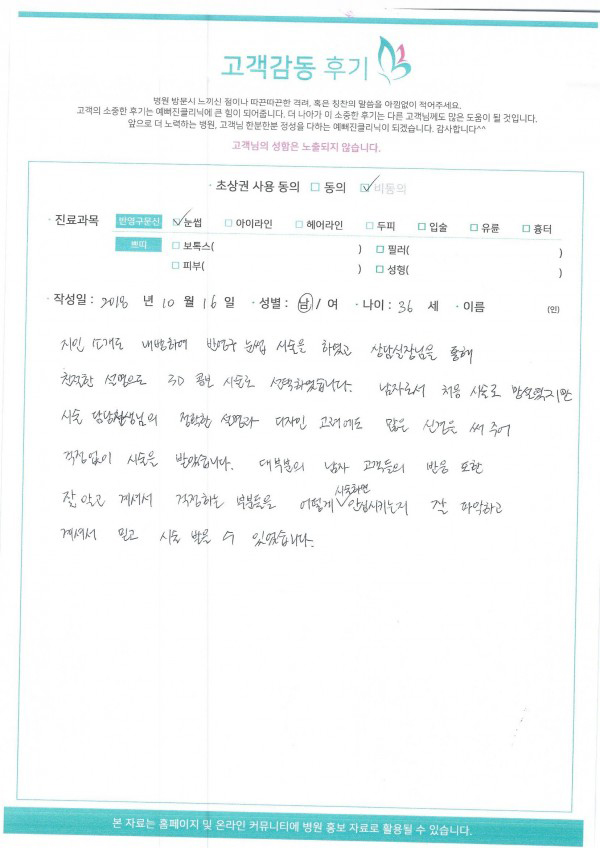 고객감동 후기
병원 방문시 느끼신 점이나 따끈따끈한 격려, 혹은 칭찬의 말씀을 아낌없이 적어주세요.
고객의 소중한 후기는 예뻐진클리닉에 큰 힘이 되어줍니다. 더 나아가 이 소중한 후기는 다른 고객님께도 많은 도움이 될 것입니다.
앞으로 더 노력하는 병원, 고객님 한분한분 정성을 다하는 예뻐진클리닉이 되겠습니다. 감사합니다^^
고객님의 성함은 노출되지 않습니다.
· 초상권 사용 동의 □ 동의 ☑ 비동의
· 진료과목 반영구문신 ☑ 눈썹 □ 아이라인 □ 헤어라인 □ 두피 □ 입술 □ 유륜 □ 흉터
쁘띠 □ 보톡스( ) □ 필러( )
□ 피부( ) □ 성형( )
· 작성일 : 2018 년 10 월 16 일 · 성별 : 남 / 여 · 나이 : 36 세 · 이름 (인)
지인 소개로 내방하여 반영구 눈썹 시술을 하였고 상담실장님을 통해
친절한 설명으로 3D 콤보 시술로 선택하였습니다. 남자로서 처음 시술로 망설였지만
시술 담당선생님의 정확한 설명과 디자인 고려에도 많은 신경을 써 주어
걱정없이 시술을 받았습니다. 대부분의 남자 고객들의 반응 또한
잘 알고 계셔서 걱정하는 부분들을 어떻게 시술하면 안심시키는지 잘 파악하고
계셔서 믿고 시술 받을 수 있었습니다.
본 자료는 홈페이지 및 온라인 커뮤니티에 병원 홍보 자료로 활용될 수 있습니다.